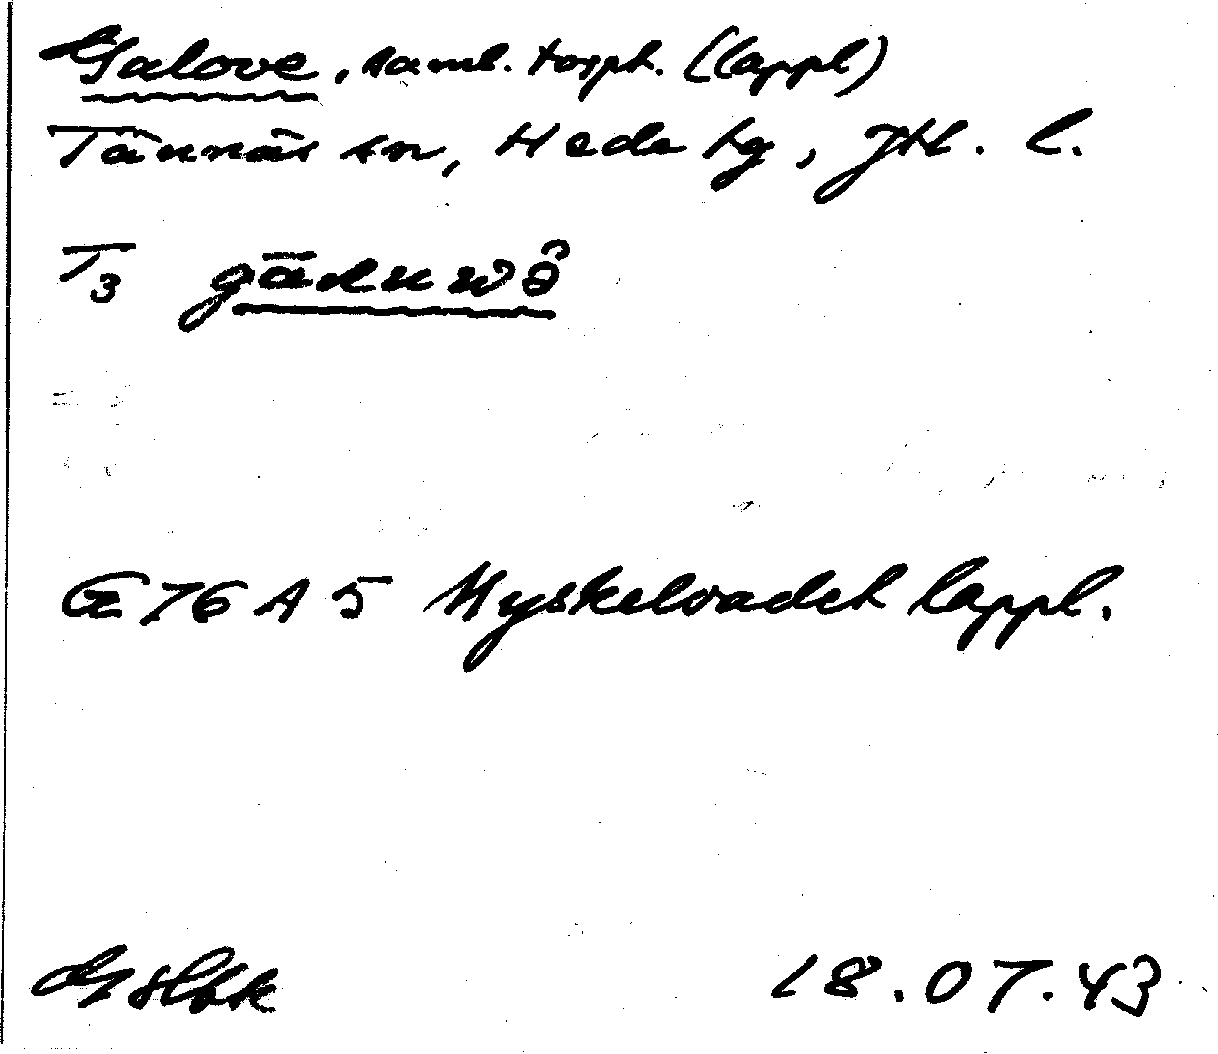 Galove, saml. torph. (lappl)
Tännäs sn, Hede tg, Jtl. l.
T3
G 76 A 5 Myskelvadet lappl.
18.07.43